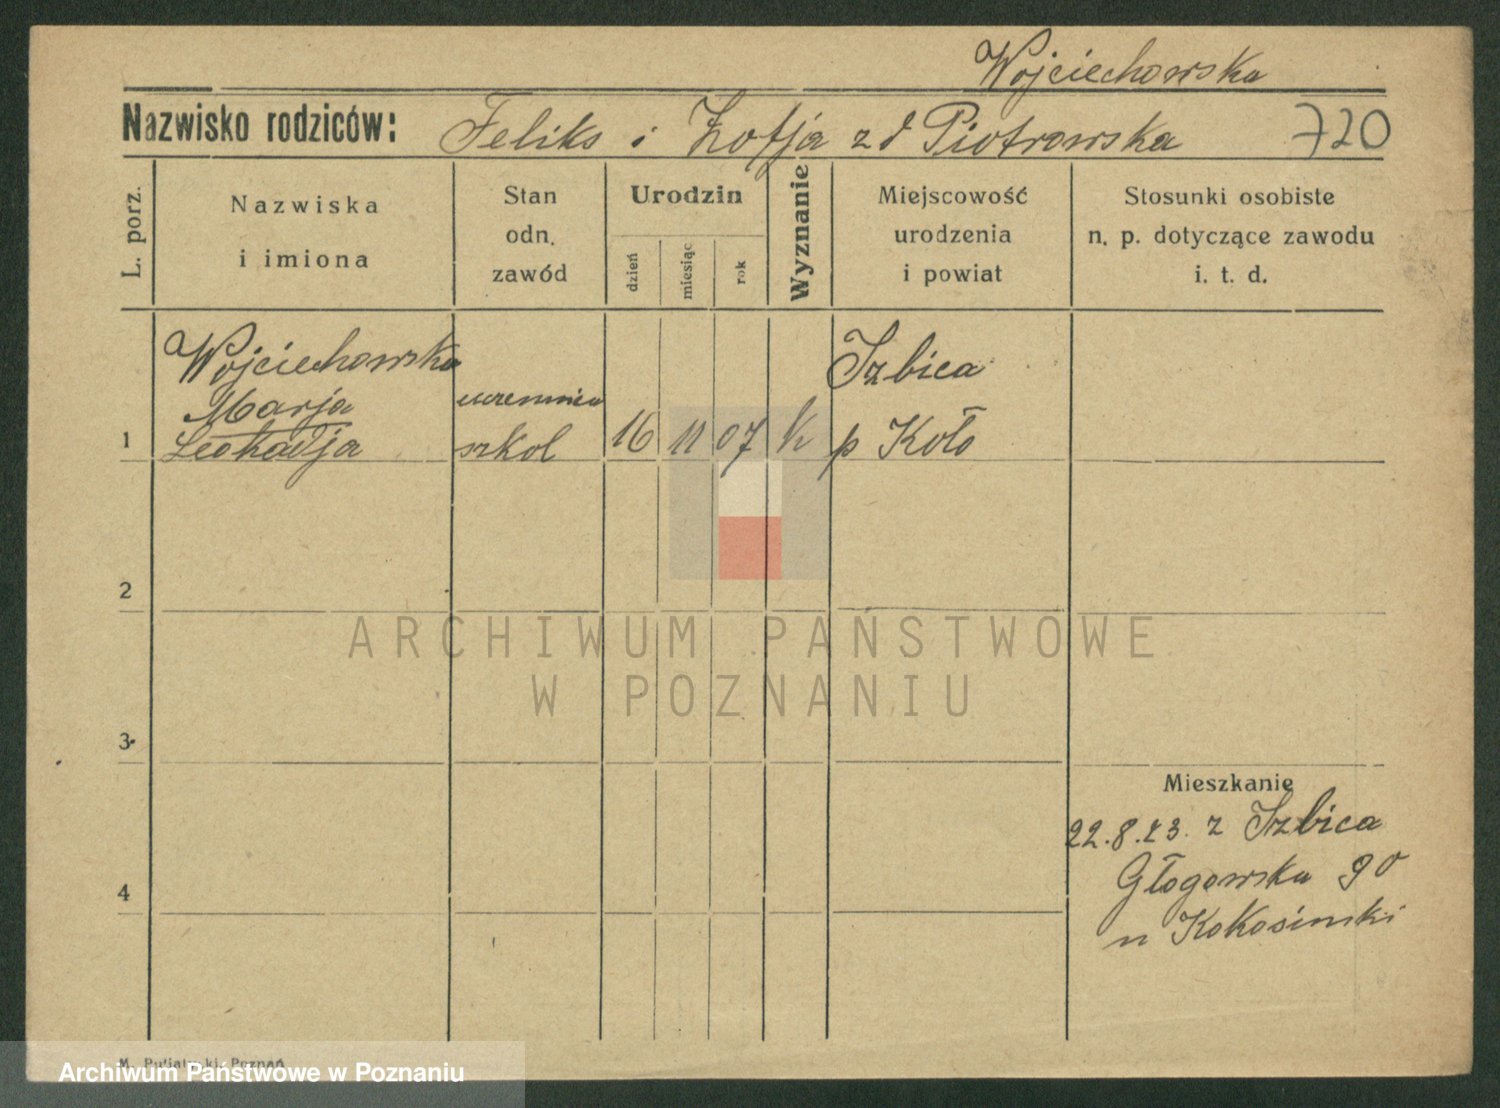 Wojciechowska
Nazwisko rodziców: Feliks i Zofja zd Piotrowska 720
L. porz.
Nazwiska
i imiona
Stan
odn.
zawód
Urodzin
dzień
miesiąc
rok
Wyznanie
Miejscowość
urodzenia
i powiat
Stosunki osobiste
n. p. dotyczące zawodu
i. t. d.
Wojciechowska Izbica
Marja uczennica
1 Leokadja szkol 16 11 07 k p Koło
2
ARCHIWUM PAŃSTWOWE
W POZNANIU
3
Mieszkanie
22.8.23. z Izbica
4 Głogowska 90
u Kokosinski
M. Poznań
Archiwum Państwowe w Poznaniu